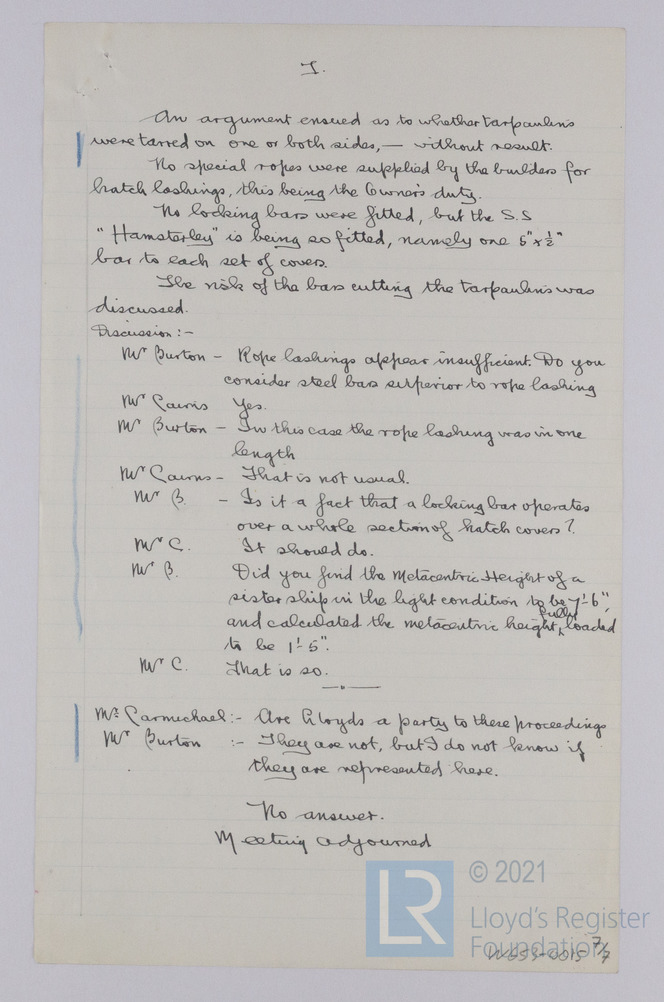 7.
An argument ensued as to whether tarpaulins
were tarred on one or both sides, — without result.
No special ropes were supplied by the builders for
hatch lashings, this being the Owner's duty.
No locking bars were fitted, but the S.S
"Hamsterley" is being so fitted, namely one 5" x ½"
bar to each set of covers.
The risk of the bars cutting the tarpaulins was
discussed.
Discussion :-
Mr Burton - Rope lashings appear insufficient. Do you
consider steel bars superior to rope lashing
Mr Cairns Yes.
Mr Burton - In this case the rope lashing was in one
length
Mr Cairns - That is not usual.
Mr B. - Is it a fact that a locking bar operates
over a whole section of hatch covers?
Mr C. It should do.
Mr B. Did you find the Metacentric Height of a
sister ship in the light condition to be 7'-6",
fully
and calculated the metacentric height, loaded
to be 1'-5".
Mr C. That is so.
Mr Carmichael :- Are Lloyds a party to these proceedings
Mr Burton :- They are not, but I do not know if
they are represented here.
No answer.
Meeting adjourned
LR
© 2021
Lloyd's Register
Foundation
W653-0015 7/7